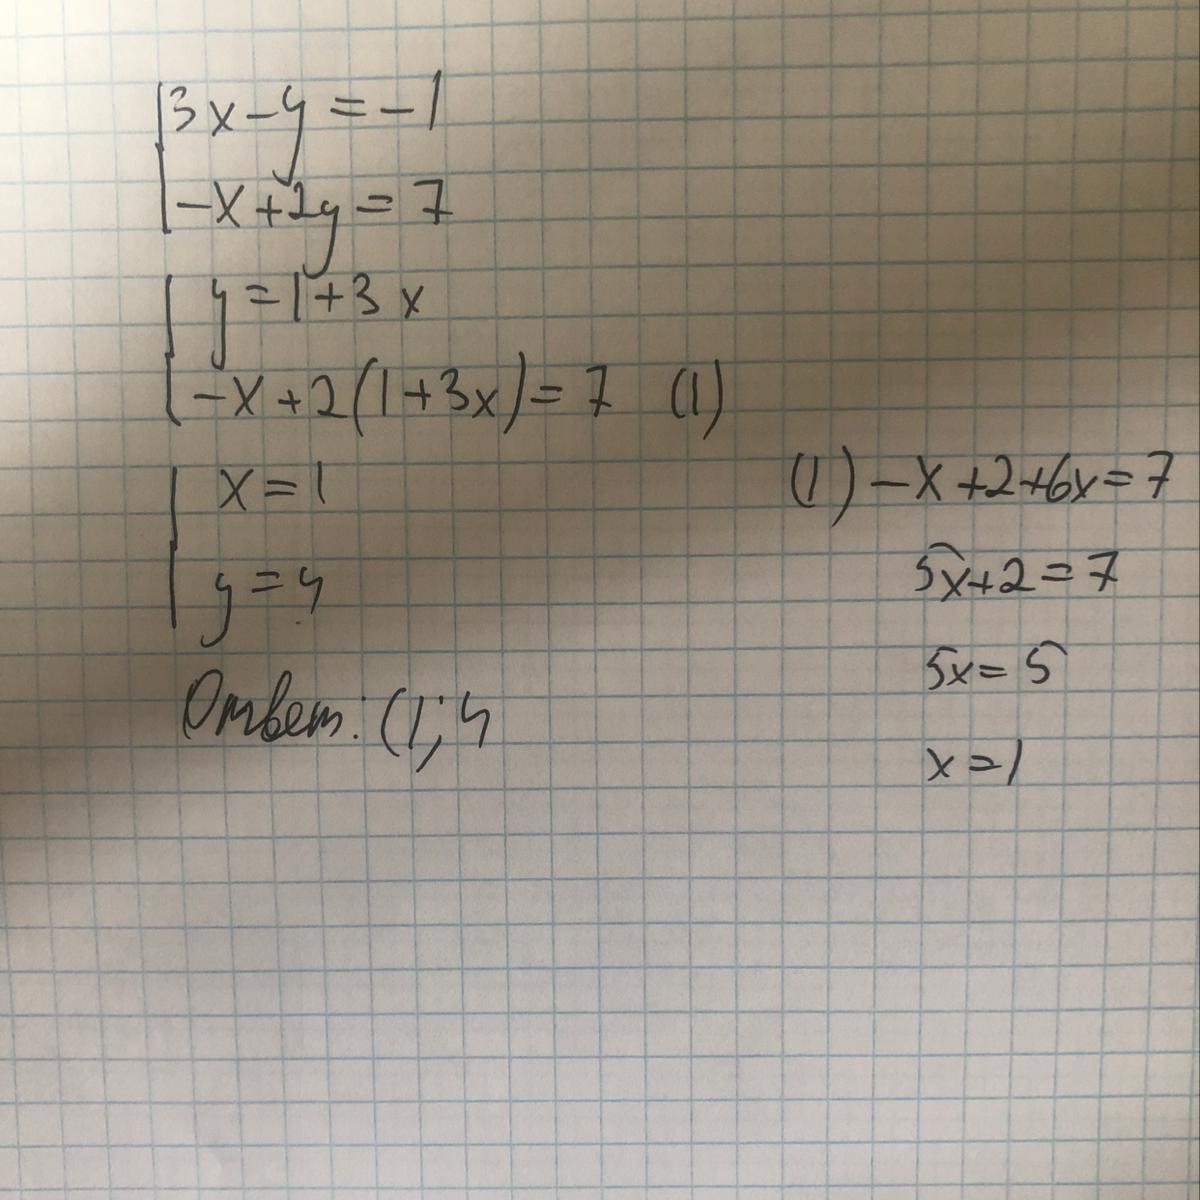 3x-y=-1
-x+2y=7
y=1+3x
-x+2(1+3x)=7 (1)
x=1
y=4
Ответ: (1;4
(1) -x+2+6x=7
5x+2=7
5x=5
x=1